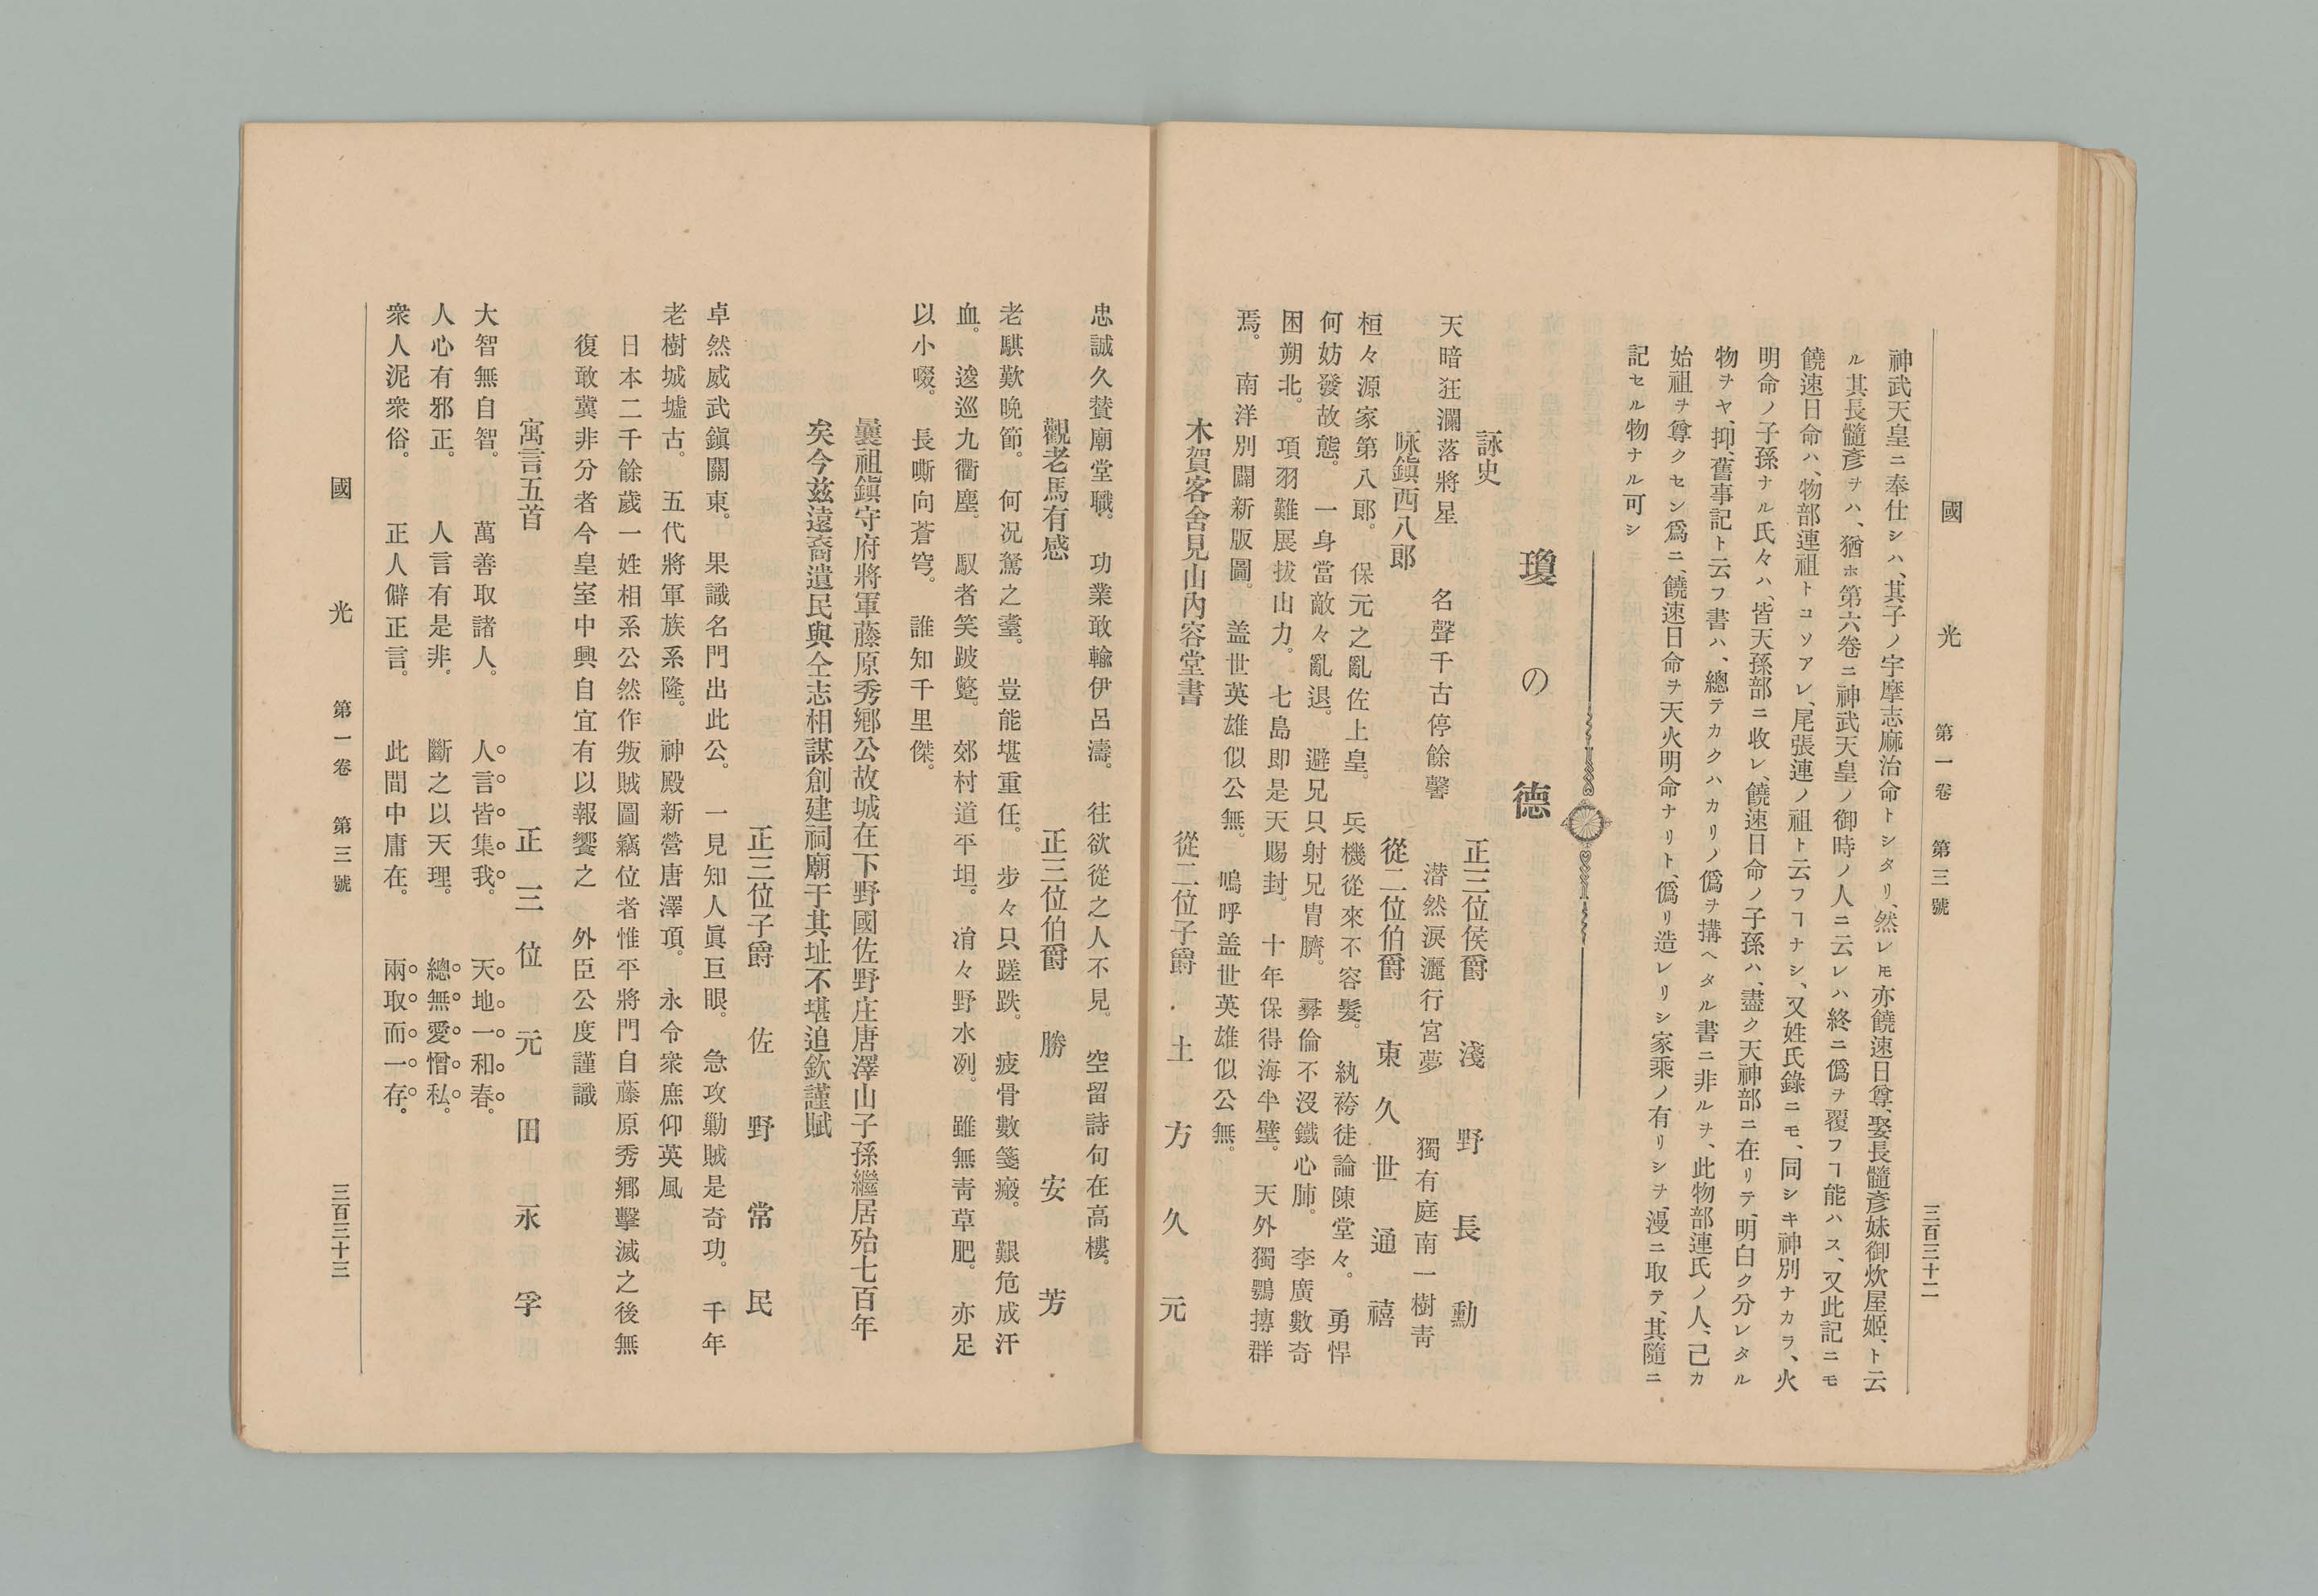 國光 第一卷 第三號 三百三十二
神武天皇ニ奉仕シハ、其子ノ宇摩志麻治命トシタリ、然レㇳモ亦饒速日尊、娶長髓彦妹御炊屋姬、ト云
ル其長髓彦ヲハ、猶ホ第六卷ニ神武天皇ノ御時ノ人ニ云レハ終ニ僞ヲ覆フヿ能ハス、又此記ニモ
饒速日命ハ、物部連祖トコソアレ、尾張連ノ祖ト云フヿナシ、又姓氏錄ニモ、同シキ神別ナカラ、火
明命ノ子孫ナル氏々ハ、皆天孫部ニ收レ、饒速日命ノ子孫ハ、盡ク天神部ニ在リテ、明白ク分レタル
物ヲヤ、抑、舊事記ト云フ書ハ、總テカクハカリノ僞ヲ搆ヘタル書ニ非ルヲ、此物部連氏ノ人、己カ
始祖ヲ尊クセン爲ニ、饒速日命ヲ天火明命ナリト、僞リ造レリシ家乘ノ有リシヲ、漫ニ取テ、其隨ニ
記セル物ナル可シ
瓊の德
詠史 正三位侯爵 淺野長勳
天暗狂瀾落將星 名聲千古停餘馨 潜然淚灑行宮夢 獨有庭南一樹靑
咏鎭西八郎 從二位伯爵 東久世通禧
桓々源家第八郎。保元之亂佐上皇。兵機從來不容髮。紈袴徒論陳堂々。勇悍
何妨發故態。一身當敵々亂退。避兄只射兄冑臍。彛倫不沒鐵心肺。李廣數奇
困朔北。項羽難展拔山力。七島即是天賜封。十年保得海半壁。天外獨鶚摶群
焉。南洋別闢新版圖。盖世英雄似公無。嗚呼盖世英雄似公無。
木賀客舍見山內容堂書 從二位子爵 土方久元
忠誠久賛廟堂職。功業敢輸伊呂濤。往欲從之人不見。空留詩句在高樓。
觀老馬有感 正三位伯爵 勝安芳
老騏歎晩節。何况駑之耋。豈能堪重任。步々只蹉跌。疲骨數箋瘢。艱危成汗
血。逡巡九衢塵。馭者笑跛躄。郊村道平坦。㳙々野水冽。雖無靑草肥。亦足
以小啜。長嘶向蒼穹。誰知千里傑。
曩祖鎭守府將軍藤原秀鄕公故城在下野國佐野庄唐澤山子孫繼居殆七百年
矣今玆遠裔遺民與仝志相謀創建祠廟于其址不堪追欽謹賦
正三位子爵 佐野常民
卓然威武鎭關東。果識名門出此公。一見知人眞巨眼。急攻勦賊是奇功。千年
老樹城墟古。五代將軍族系隆。神殿新營唐澤頂。永令衆庶仰英風
日本二千餘歲一姓相系公然作叛賊圖竊位者惟平將門自藤原秀鄕擊滅之後無
復敢冀非分者今皇室中興自宜有以報饗之 外臣公度謹識
寓言五首 正三位 元田永孚
大智無自智。萬善取諸人。人言皆集我。天地一和春。
人心有邪正。人言有是非。斷之以天理。總無愛憎私。
衆人泥衆俗。正人僻正言。此間中庸在。兩取而一存。
國光 第一卷 第三號 三百三十三